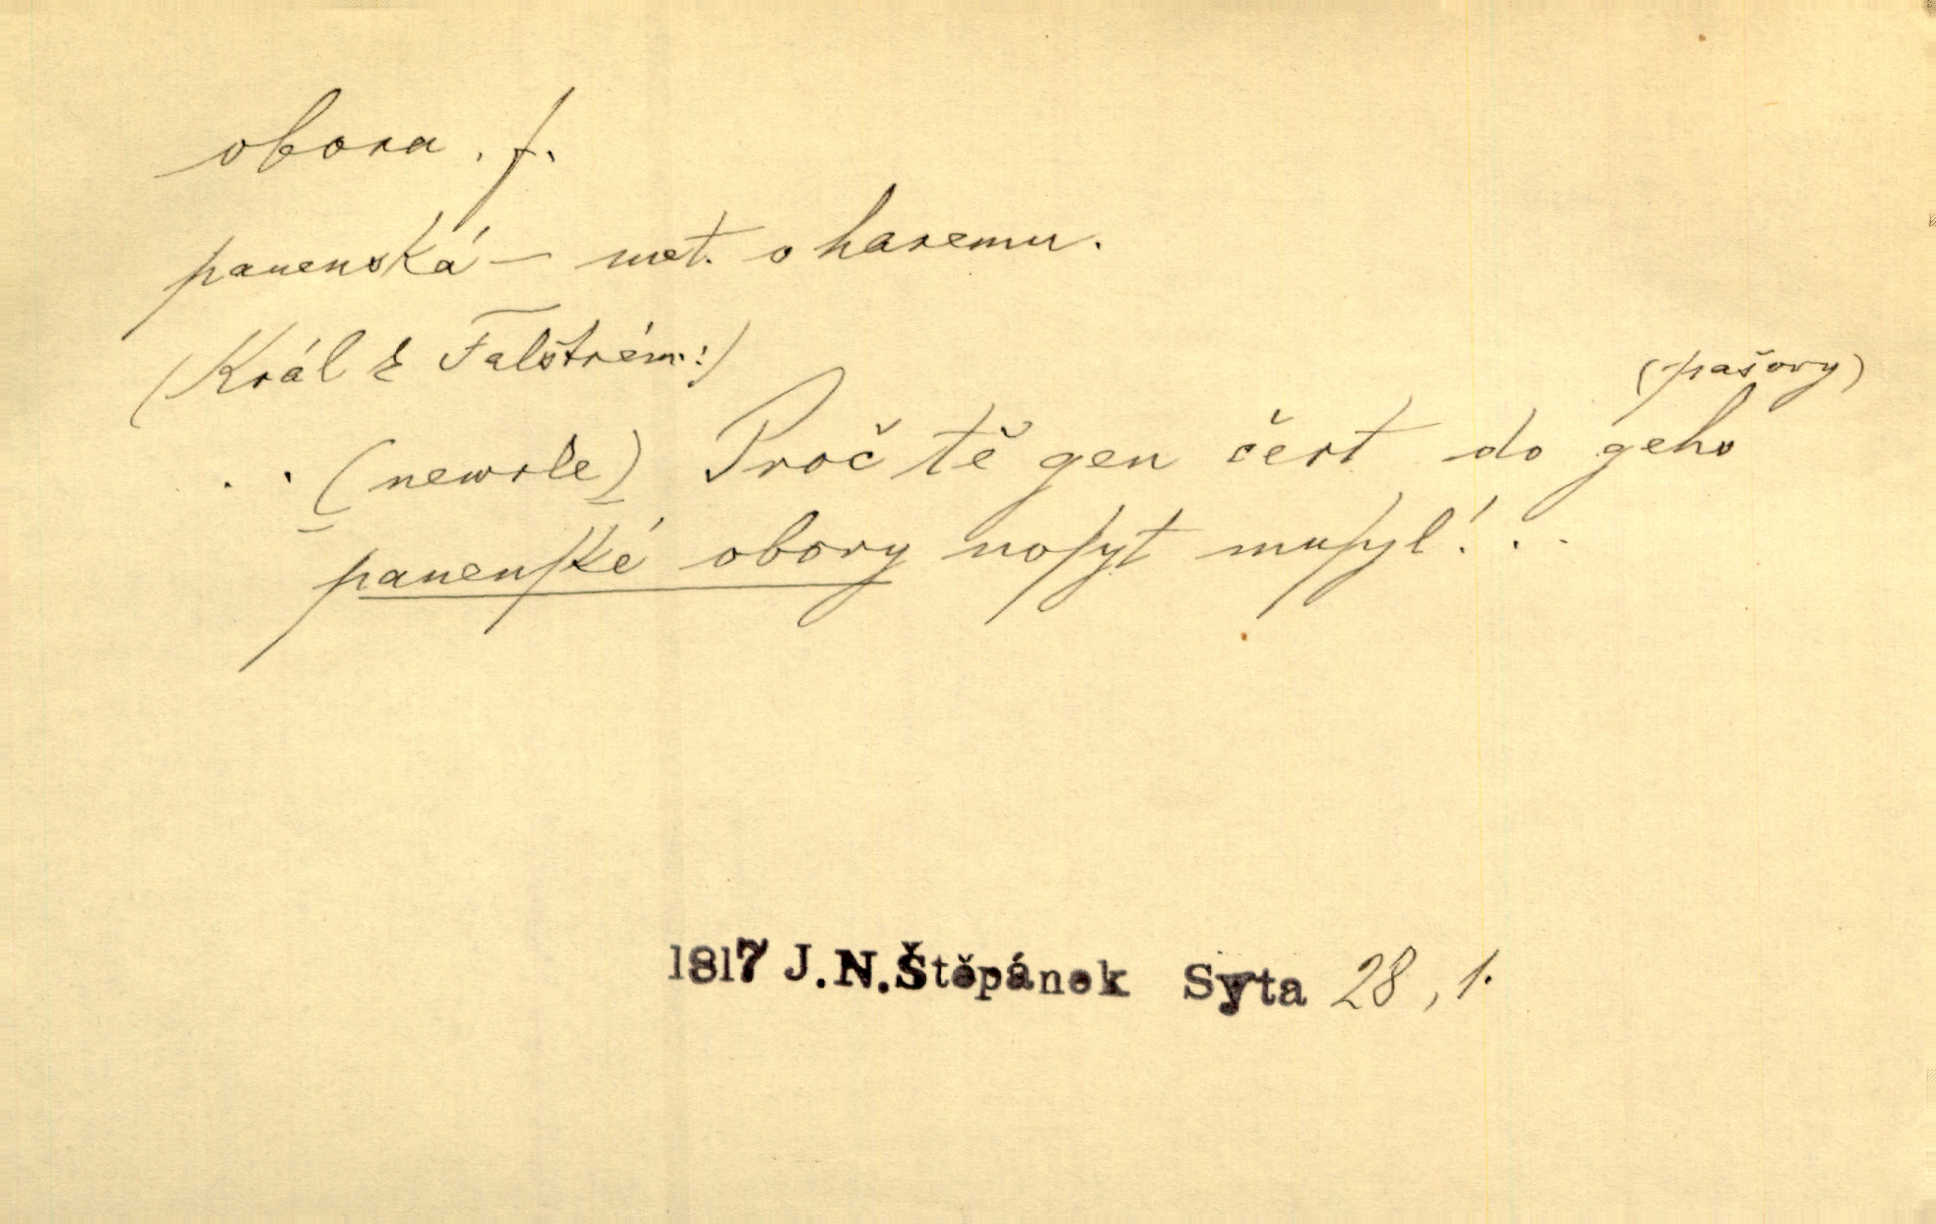 obora . f.
panenská — met. o haremu.
(Král k Falštrém:)
(pašovy)
. . (newrle) Proč tě gen čert do geho
panenſké obory noſyt muſyl! . .
1817 J.N.Štěpánek Syta 28, 1.